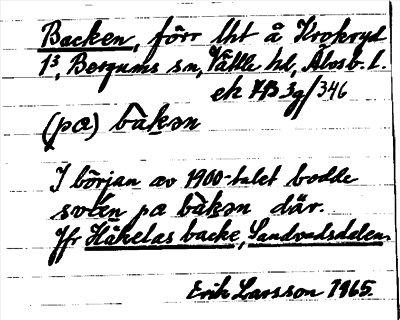 Backen, förr lht å Krokryd
1³, Bergums sn, Vättle hd, Älvsb. l.
ek 7B3g/346
(pa) bàkən
I början av 1900-talet bodde
svén pa bàkən där.
Jfr Håkelas backe, Sandvadsdalen.
Erik Larsson 1965.